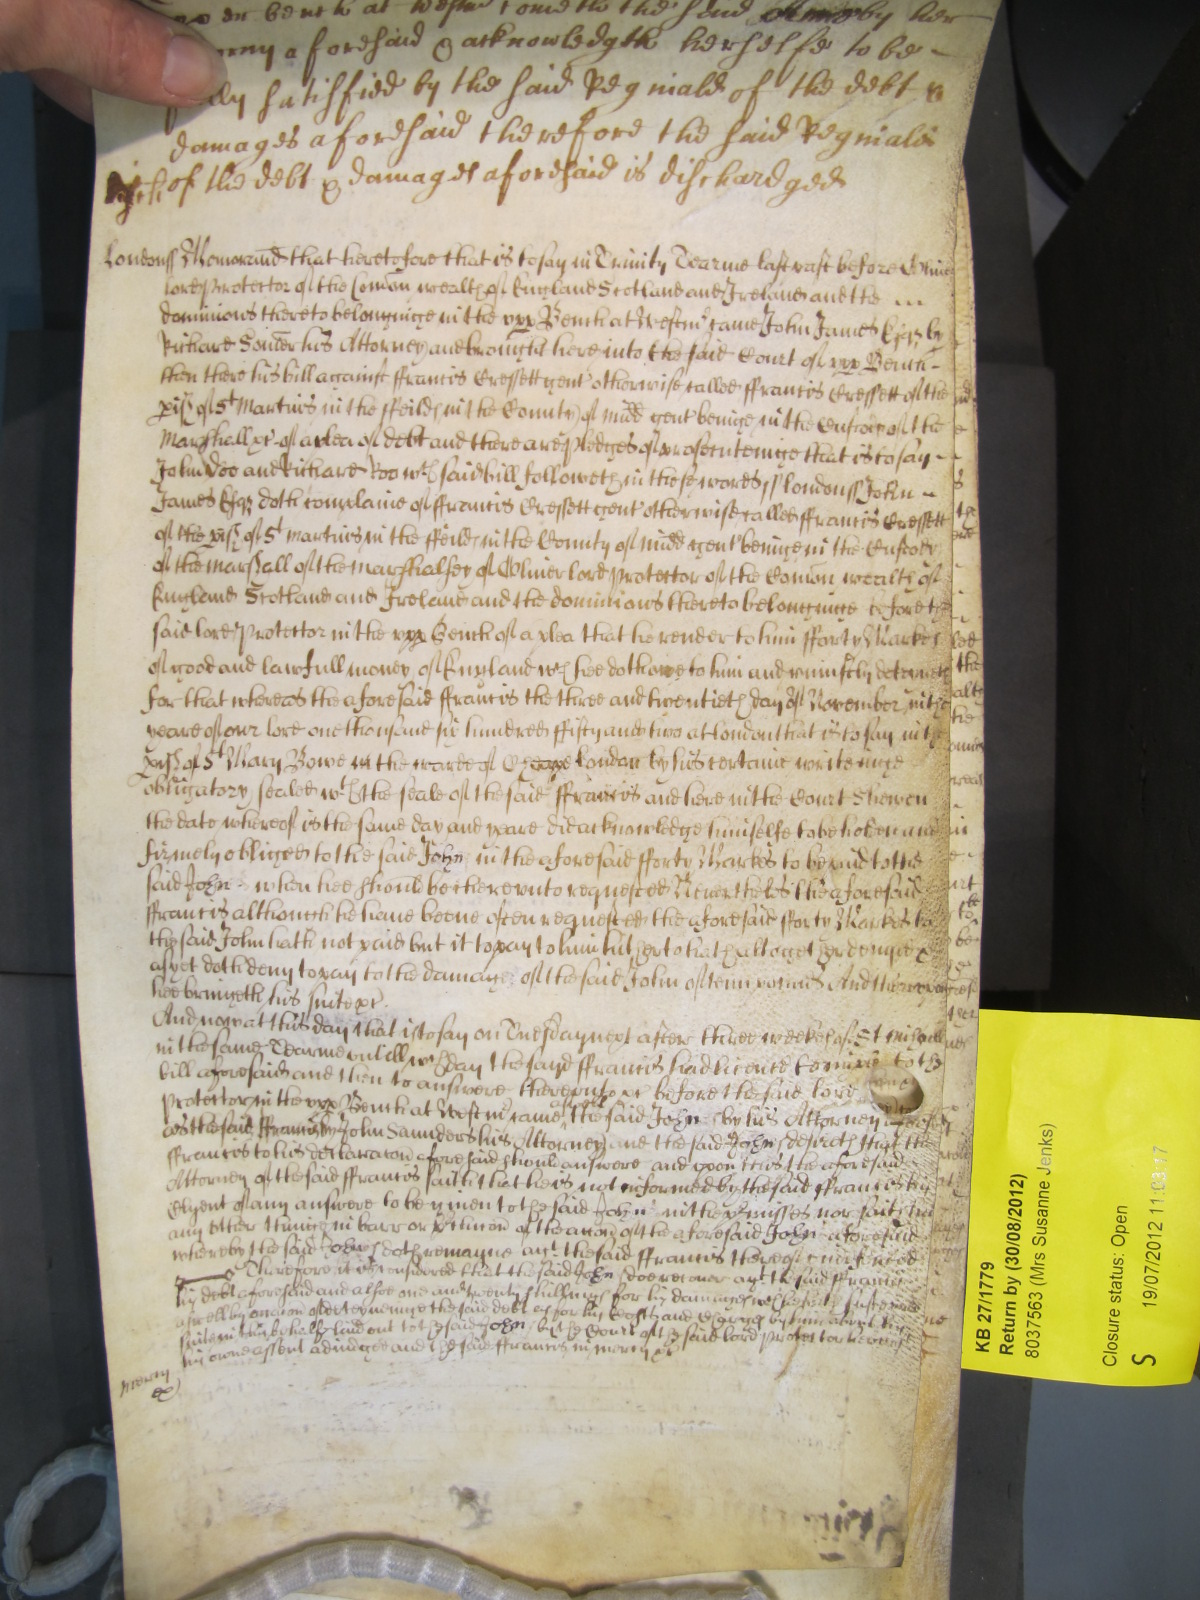 en bench at Westm cometh the said by her
aforesaid & acknowledgth herselfe to be
fully satisfied by the said Reginald of the debt &
damages aforesaid therefore the said Reginald
of the debt & damages aforesaid is dischardged
Londonss Memorand that heretofore that is to say in Trinity Tearme last past before Oliver
lord Protector of the Comon wealth of England Scotland and Ireland and the
dominions thereto belonginge in the vpp Bench at Westmr came John James Esqr by
Richard his Attorney and brought here into the said Court of vpp Bench
then there his bill against ffrancis Cressett gent otherwise called ffrancis Cressett of the
pish of St Martins in the ffeilds in the County of Midd gent beinge in the Custody of the
Marshall &c of a plea of debt and there are pledges of prosecuteinge that is to say
John Doe and Richard Roo wch said bill followeth in these words ss londonss John
James Esqr doth complaine of ffrancis Cressett gent otherwise called ffrancis Cressett
of the pish of St Martins in the ffeilds in the County of Midd gent beinge in the Custody
of the Marshall of the Marshalsey of Oliver lord Protector of the Comon wealth of
England Scotland and Ireland and the dominions thereto belonginge before the
said lord Protector in the vpp Bench of a plea that he render to him fforty Markes
of good and lawfull money of England wch hee doth owe to him and uniustly deteineth
for that whereas the aforesaid ffrancis the three and twentieth day of November in the
yeare of our lord one thousand six hundred ffifty and two at london that is to say in the
pish of St Mary Bowe in the warde of Cheape london by his certaine writeinge
obligatory sealed wth the seale of the said ffrancis and here in the Court shewen
the date whereof is the same day and yeare did acknowledge himselfe to be holden and
firmely obliged to the said John in the aforesaid fforty Markes to be paid to the
said John when hee should be thereunto requested Neverthelesse the aforesaid
ffrancis although he have beene often requested the aforesaid fforty Markes to
the said John hath not paid but it to pay to him hitherto hath altogether denyed &
as yet doth deny to pay to the damage of the said John of tenn pounds And thereupon
hee bringeth his suite &c
And now at this day that is to say on Tuesday next after three weekes of St Michaell
in the same Tearme untill wch day the sayd ffrancis had licence to to the
bill aforesaid and then to answere thereunto &c before the said lord
Protector in the vpp Bench at Westmr came the said John by his Attorney aforesaid
as the said ffrancis by John Saunders his Attorney and the said John desireth that the
ffrancis to his declaracon aforesaid should answere and upon this the aforesaid
Attorney of the said ffrancis saith that he is not informed by the said ffrancis his
Clyent of any answere to be given to the said John in the pmisses nor saith
any other thinge in barr or of the accon of the aforesaid John aforesaid
whereby the said John doth remayne agt the said ffrancis thereof undefended
Therefore it is considered that the said John doe recover agt the said ffrancis
his debt aforesaid and alsoe one and twenty shillings for his damages wch he hath susteyned
aswell by occasion of deteyneinge the said debt as for his Costs and charges by him about his
suite in this behalfe laid out to the said John by the Court of the said lord Protector here
his owne assent adiudged and the said ffrancis in mercy &c
mercy
KB 27/1779
Return by (30/08/2012)
8037563 (Mrs Susanne Jenks)
Closure status: Open
S 19/07/2012 11:03:17